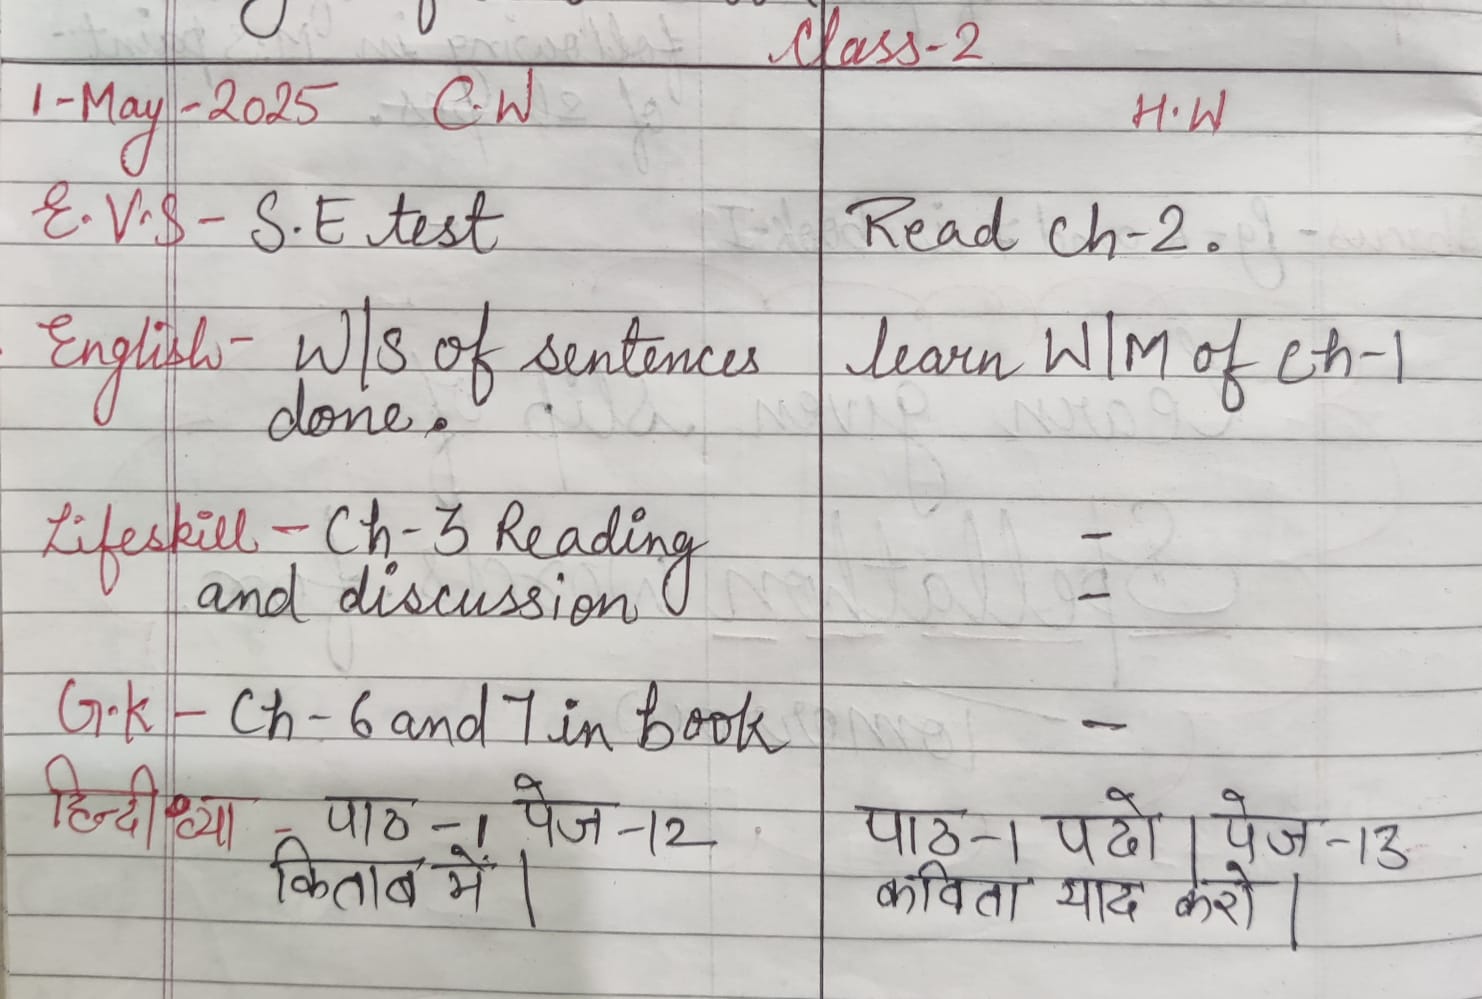 Class-2
1-May-2025 C.W H.W
E.V.S - S.E test Read Ch-2.
English - W/S of sentences learn W/M of Ch-1
done.
Lifeskill - Ch-3 Reading -
and discussion -
G.K - Ch-6 and 7 in book -
हिन्दी व्या - पाठ-1 पेज-12 पाठ-1 पढो। पेज-13
किताब में। कविता याद करो।